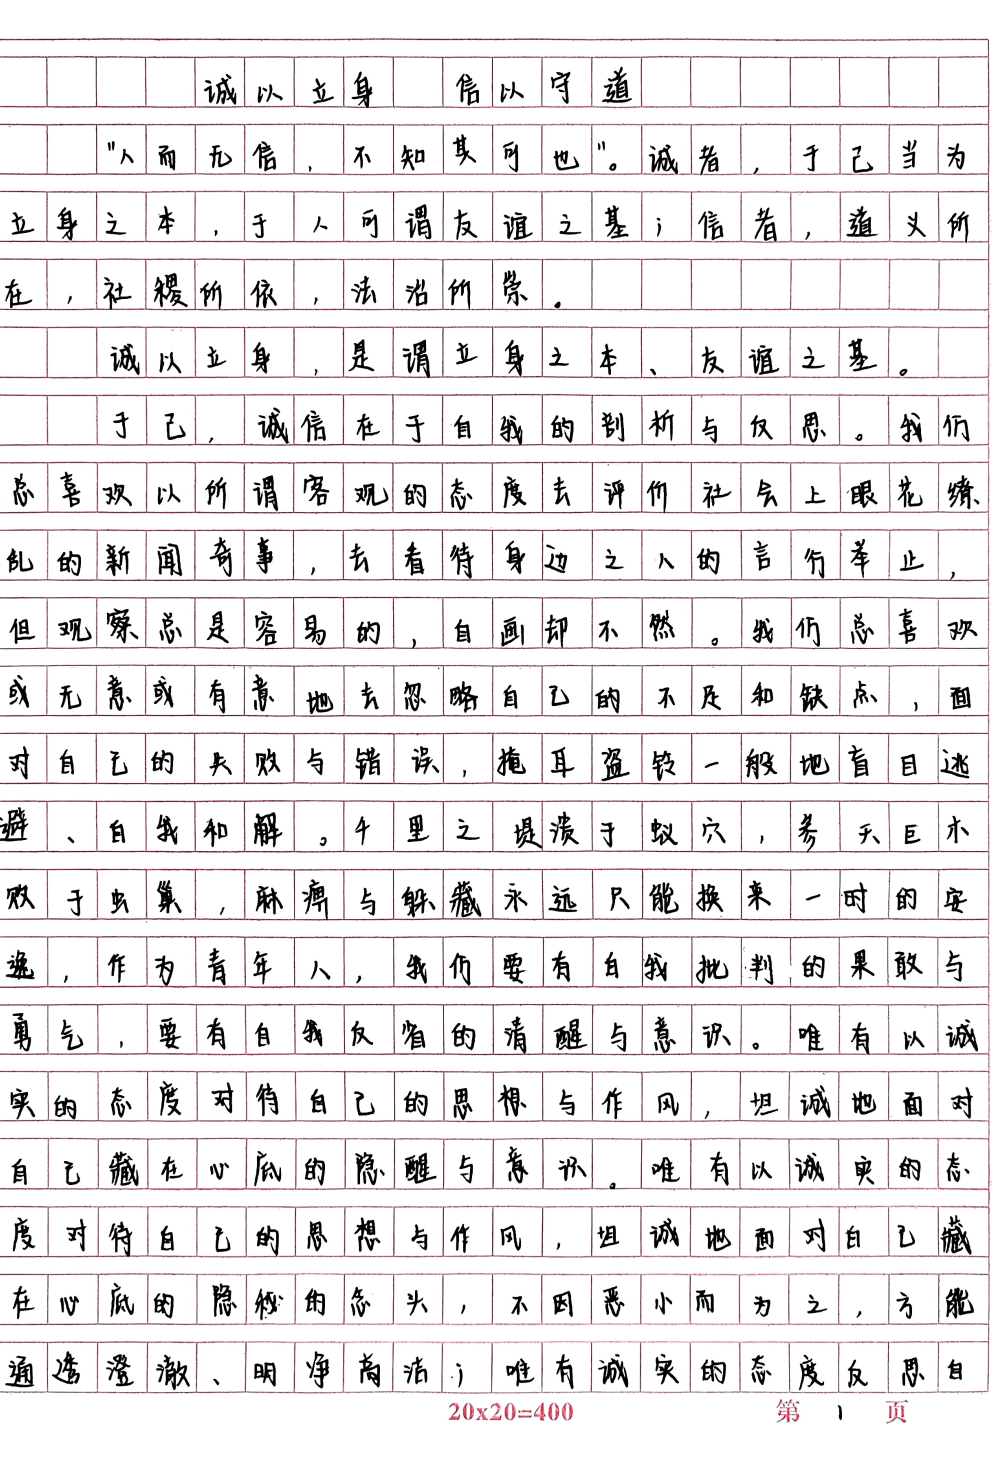 诚以立身 信以守道
“人而无信，不知其可也”。诚者，于己当为
立身之本，于人可谓友谊之基；信者，道义所
在，社稷所依，法治所崇。
诚以立身，是谓立身之本、友谊之基。
于己，诚信在于自我的剖析与反思。我们
总喜欢以所谓客观的态度去评价社会上眼花缭
乱的新闻奇事，去看待身边之人的言行举止，
但观察总是容易的，自画却不然。我们总喜欢
或无意或有意地去忽略自己的不足和缺点，面
对自己的失败与错误，掩耳盗铃一般地盲目逃
避、自我和解。千里之堤溃于蚁穴，参天巨木
败于虫巢，麻痹与躲藏永远只能换来一时的安
逸，作为青年人，我们要有自我批判的果敢与
勇气，要有自我反省的清醒与意识。唯有以诚
实的态度对待自己的思想与作风，坦诚地面对
自己藏在心底的隐醒与意识。唯有以诚实的态
度对待自己的思想与作风，坦诚地面对自己藏
在心底的隐秘的念头，不因恶小而为之，方能
通透澄澈、明净高洁；唯有诚实的态度反思自
20x20=400 第 1 页